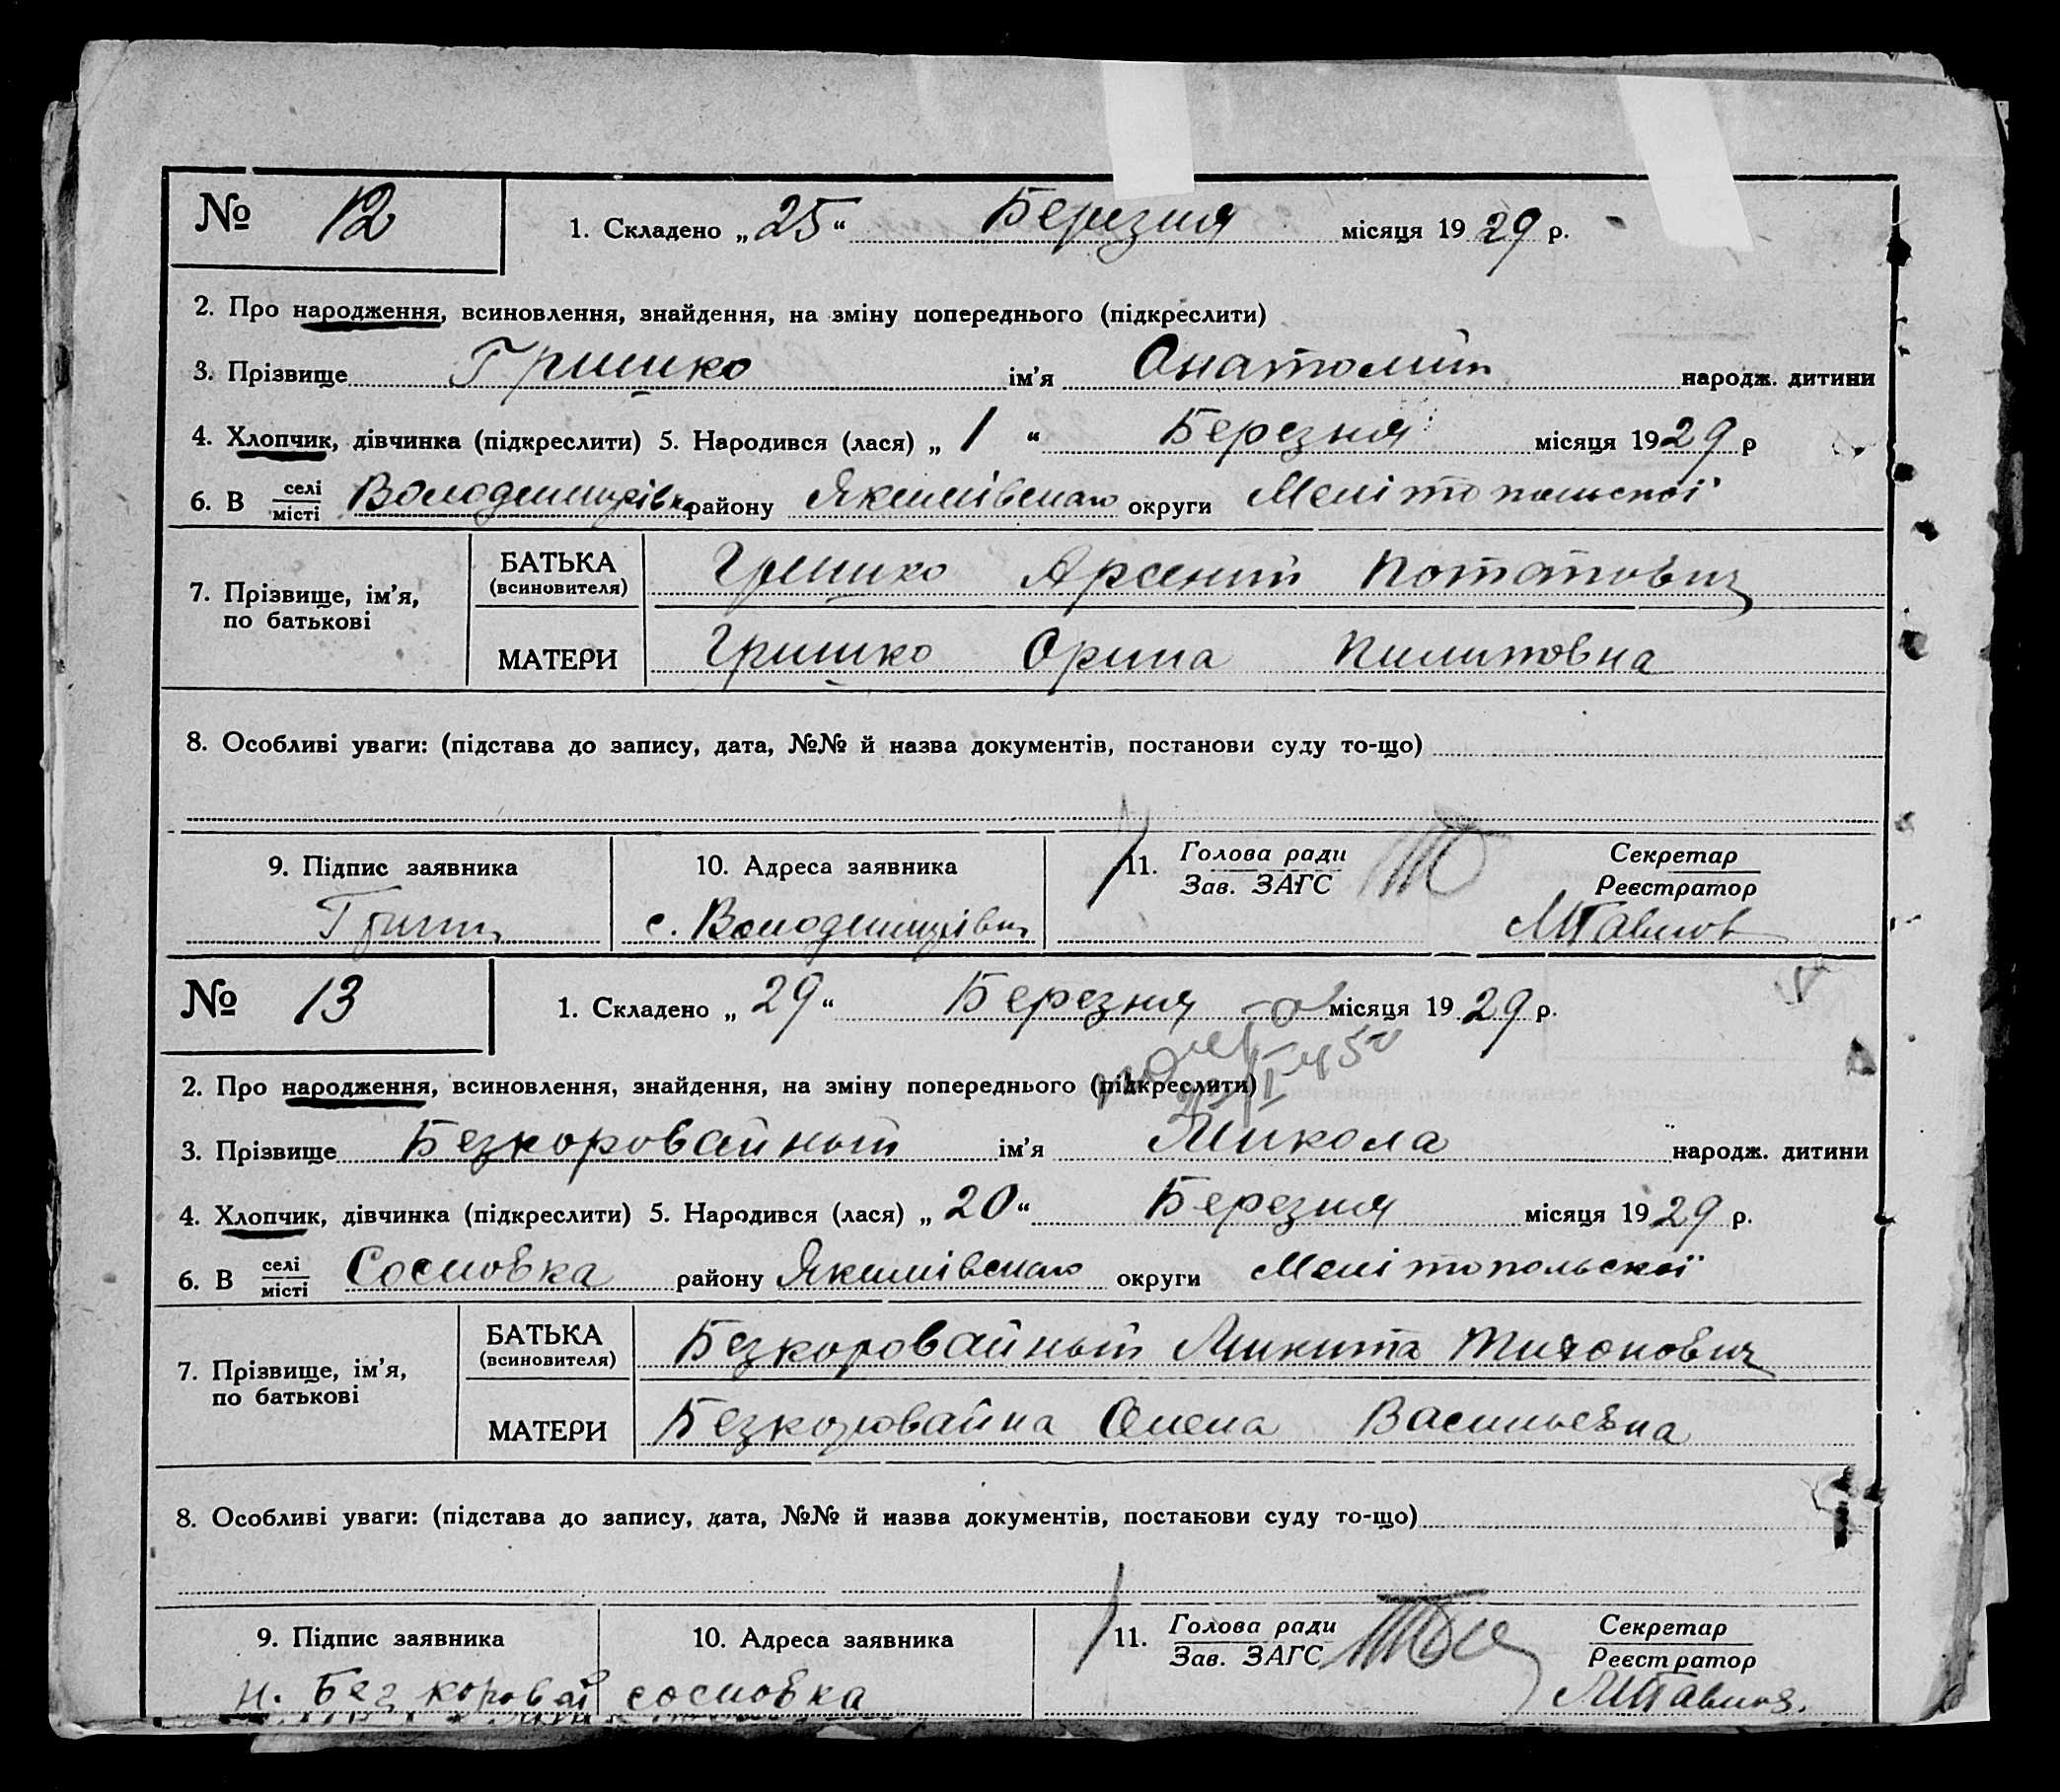 № 12 1. Складено „25“ Березня місяця 1929 р.
2. Про народження, всиновлення, знайдення, на зміну попереднього (підкреслити)
3. Прізвище Гришко ім’я Онатолий народж. дитини
4. Хлопчик, дівчинка (підкреслити) 5. Народився (лася) „1“ Березня місяця 1929 р
6. В селі/місті Володимирівка району Якимівського округи Мелітопольської
7. Прізвище, ім’я, по батькові
БАТЬКА (всиновителя) Гришко Арсений Потапович
МАТЕРИ Гришко Орина Пилиповна
8. Особливі уваги: (підстава до запису, дата, №№ й назва документів, постанови суду то-що)
9. Підпис заявника 10. Адреса заявника 11. Голова ради Секретар
Зав. ЗАГС Реєстратор
с. Володимирівка
№ 13 1. Складено „29“ Березня місяця 1929 р.
2. Про народження, всиновлення, знайдення, на зміну попереднього (підкреслити)
3. Прізвище Безкоровайный ім’я Микола народж. дитини
4. Хлопчик, дівчинка (підкреслити) 5. Народився (лася) „20“ Березня місяця 1929 р.
6. В селі/місті Сосновка району Якимівського округи Мелітопольської
7. Прізвище, ім’я, по батькові
БАТЬКА (всиновителя) Безкоровайный Микита Тихонович
МАТЕРИ Безкоровайна Олена Васильевна
8. Особливі уваги: (підстава до запису, дата, №№ й назва документів, постанови суду то-що)
9. Підпис заявника 10. Адреса заявника 11. Голова ради Секретар
Зав. ЗАГС Реєстратор
н. Безкоровай сосновка